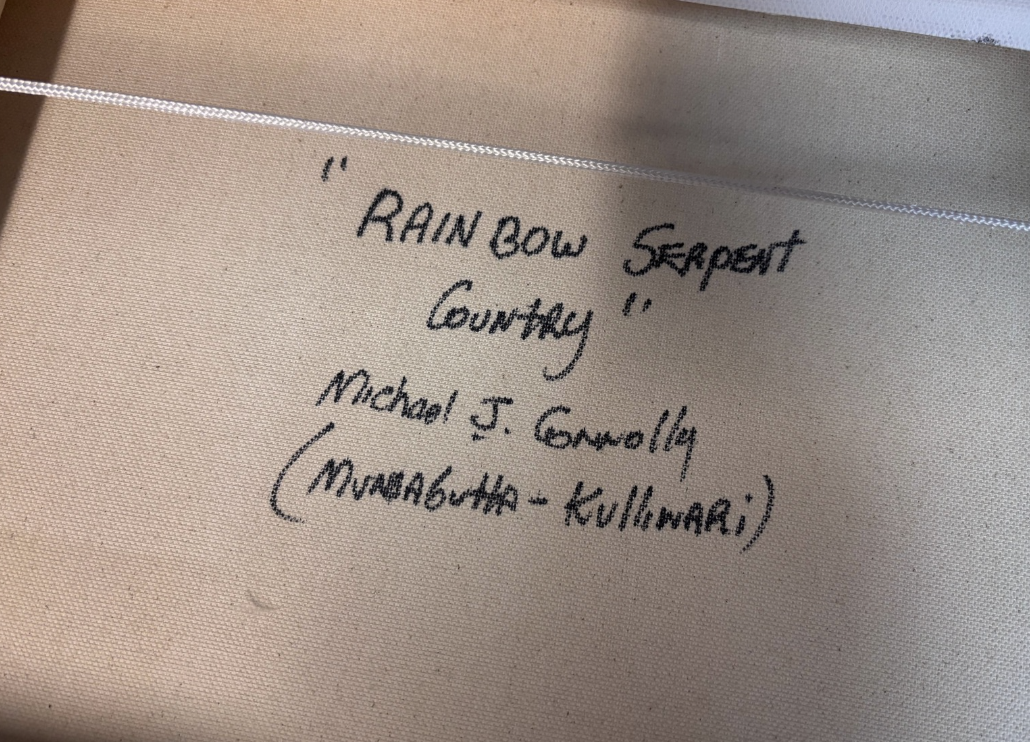 "RAINBOW SERPENT
COUNTRY"
Michael J. Connolly
(MUNDAGUTTA-KULLIWARI)